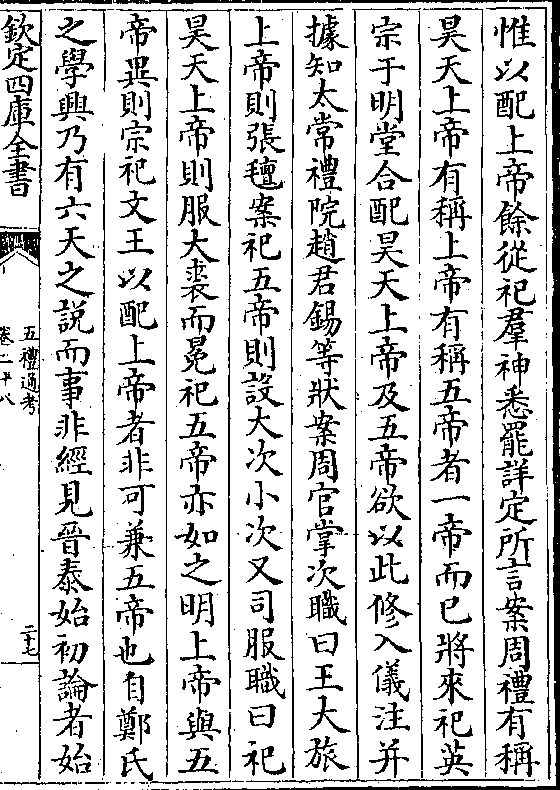 惟以配上帝餘從祀羣神悉罷詳定所言案周禮有稱
昊天上帝有稱上帝有稱五帝者一帝而已將來祀英
宗于明堂合配昊天上帝及五帝欲以此修入儀注并
據知太常禮院趙君錫等狀案周官掌次職曰王大旅
上帝則張氊案祀五帝則設大次小次又司服職曰祀
昊天上帝則服大裘而冕祀五帝亦如之明上帝與五
帝異則宗祀文王以配上帝者非可兼五帝也自鄭氏
之學興乃有六天之說而事非經見晉泰始初論者始
欽定四庫全書
五禮通考
卷二十八
二十七